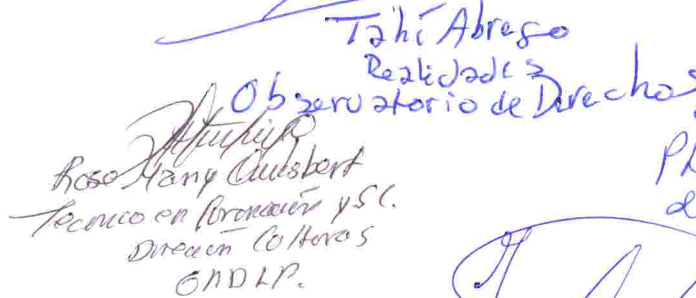 Tahí Abrego
Realidades
Observatorio de Derechos
Rose Mary Quisbert
Tecnico en Formación y SC.
Dirección Culturas
GADLP.